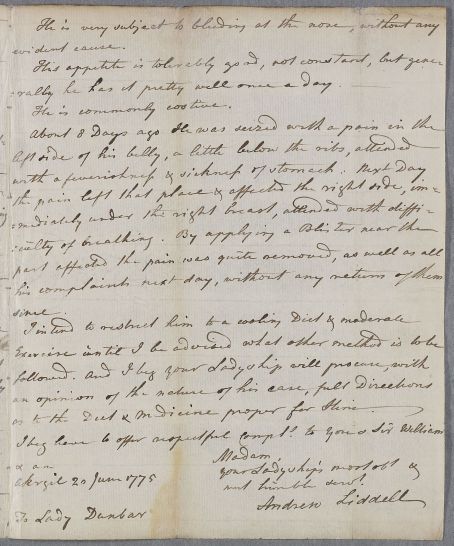 He is very subject to bleeding at the nose, without any
evident cause.
His appetite is tolerably good, not constant, but gene-
-rally he has it pretty well once a day.
He is commonly costive.
About 8 Days ago He was seized with a pain in the
left side of his belly, a little below the ribs, attended
with a feverishness & sickness of stomach. Next Day
the pain left that place & affected the right side, im-
-mediately under the right breast, attended with diffi-
-culty of breathing. By applying a Blister near the
part affected the pain was quite removed, as well as all
his complaints next day, without any return of them
since.
I intend to restrict him to a cooling Diet & moderate
Exercise until I be advised what other method is to be
followed. And I beg your Ladyship will procure, with
an opinion of the nature of his case, full Directions
as to the Diet & Medicine proper for Him.
I beg leave to offer respectful compts. to you & Sir William
& am
Madam,
your Ladyship's most obt &
most humble servt.
Andrew Liddell
20 June 1775
To Lady Dunbar